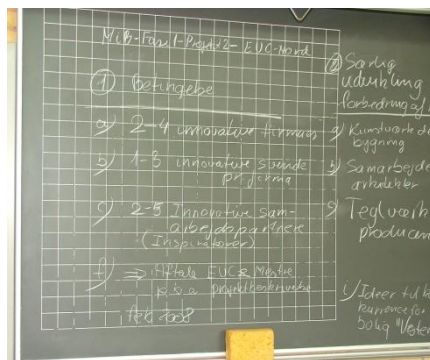 MiB-Fase 1-Projekt 2- EUC-Nord
① Betingelse
a) 2-4 innovative firmaer
b) 1-3 innovative svende
pr firma
c) 2-5 Innovative sam-
arbejdspartnere
(Inspiratorer)
f) => Aftale EUC & Mestre
Feb 2008
② Særlig
udvikling
forbedring af
a) Kunstværk
bygning
b) Samarbejde
arkitekter
Teglværk
producen
Ideer til
bolig "Vester